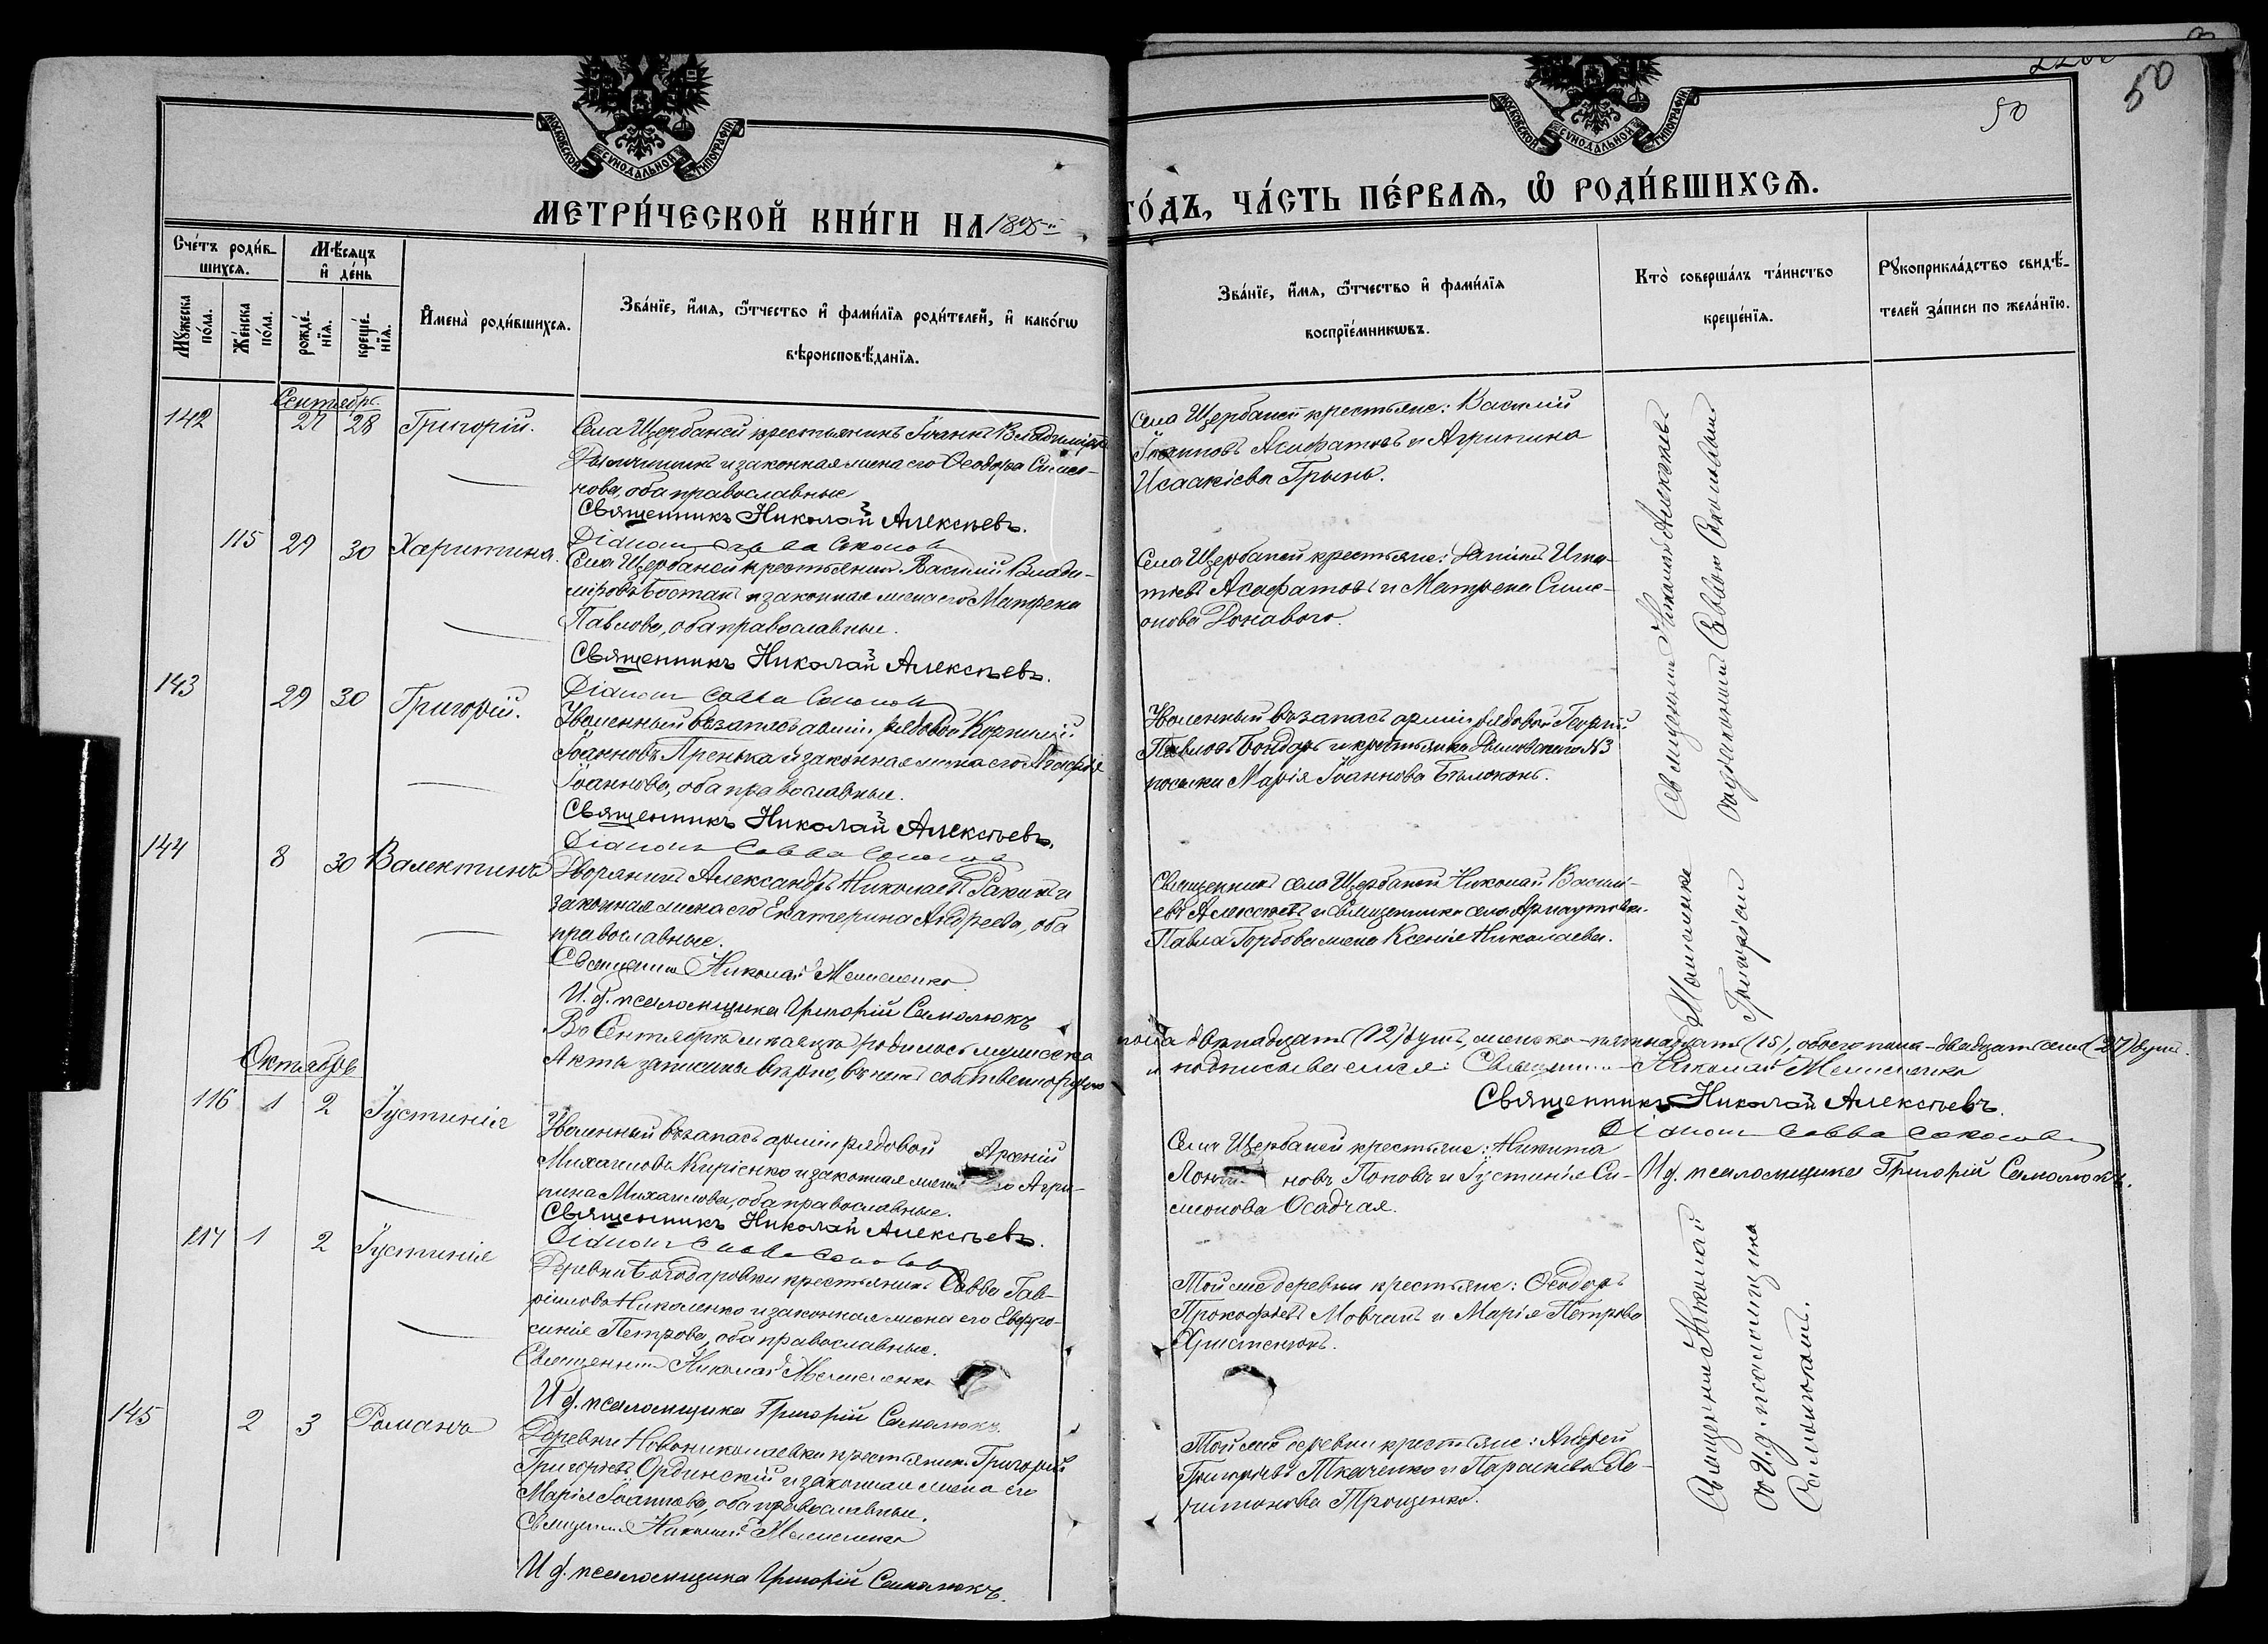 50
50
МОСКОВСКОЙ СѴНОДАЛЬНОЙ ТИПОГРАФІИ
МОСКОВСКОЙ СѴНОДАЛЬНОЙ ТИПОГРАФІИ
МЕТРИ́ЧЕСКОЙ КНИ́ГИ НА
ГО́ДЪ, ЧА́СТЬ ПЕ́РВАѦ, Ѡ҆ РОДИ́ВШИХСѦ.
Сче́тъ роди́в-
шихсѧ.
Мѣ́сѧцъ
и҆ де́нь
Мꙋ́жеска
по́ла.
Же́нска
по́ла.
рожде́-
нїѧ.
креще́-
нїѧ.
И҆мена̀ роди́вшихсѧ.
Зва́нїе, и҆́мѧ, ѻ҆́тчество и҆ фами́лїѧ роди́телей, и҆ како́гѡ
вѣроисповѣ́данїѧ.
Зва́нїе, и҆́мѧ, ѻ҆́тчество и҆ фами́лїѧ
воспрїе́мникѡвъ.
Кто̀ соверша́лъ та́инство
креще́нїѧ.
Рꙋкоприкла́дство свидѣ́-
телей за́писи по жела́нїю.
Сентябрь
142 27 28 Григорій.
Села Щербаней крестьянинъ Іоаннъ Владиміровъ
и законная жена его Ѳеодора Симео-
нова, оба православные
Священникъ Николай Алексѣевъ.
Діаконъ Савва Соколовъ
Села Щербаней крестьяне: Василій
Асафатовъ и Агрипина
Исаакіева Грынь.
115 29 30 Харитина.
Села Щербаней крестьянинъ Василій Влади-
міровъ Бостан и законная жена его Матрена
Павлова, оба православные.
Священникъ Николай Алексѣевъ.
Діаконъ Савва Соколовъ
Села Щербаней крестьяне: Данiилъ Игна-
тьевъ Асафатовъ и Матрона Симе-
онова
143 29 30 Григорій.
Уволенный въ запасъ арміи рядовой Корнилій
Іоанновъ Пренька и законная жена его Агафія
Іоаннова, оба православные.
Священникъ Николай Алексѣевъ.
Діаконъ Савва Соколовъ
Уволенный въ запасъ арміи рядовой Георгій
Павловъ Бондарь и крестьянка №3
поселка Марія Іоаннова Бѣлоконь.
144 8 30 Валентинъ
Дворянинъ Александръ Николаевъ Ракитъ и
законная жена его Екатерина Андреева, оба
православные.
Священникъ Николай Мельменко
И. д. псаломщика Григорій Самолюкъ
Священникъ села Щербаней Николай Василь-
евъ Алексѣевъ и священника села Арнаутовки
Павла Горбова жена Ксенія Николаева.
Священникъ Николай Алексѣевъ
съ діакономъ Саввою Соколовымъ
Въ Сентябрѣ мѣсяцѣ родилось мужеска
пола двѣнадцать (12) душъ, женска – пятнадцать (15), обоего пола – двадцать семь (27) душъ.
Акты записаны вѣрно, въ чемъ собственоручно
и подписываемся: Священникъ Николай Мельменко
Священникъ Николай Алексѣевъ.
Діаконъ Савва Соколовъ
И д. псаломщика Григорій Самолюкъ.
Октябрь
116 1 2 Іустинія
Уволенный въ запасъ арміи рядовой Арсеній
Михаиловъ Киріенко и законная жена его Агри-
пина Михаилова, оба православные.
Священникъ Николай Алексѣевъ.
Діаконъ Савва Соколовъ
Села Щербаней крестьяне: Никита
новъ Поповъ и Іустинія Си-
меонова Осадчая.
117 1 2 Іустинія
Деревни Богодаровки крестьянинъ Савва Гав-
ріиловъ Николенко и законная жена его Евфро-
синія Петрова, оба православные.
Священникъ Николай Мельменко
И д. псаломщика Григорій Самолюкъ.
Той же деревни крестьяне: Ѳеодоръ
Прокофьевъ Мовчанъ и Марія Петрова
Христенюкъ.
145 2 3 Романъ
Деревни Новониколаевки крестьянинъ Григорій
Григорьевъ Ординскій и законная жена его
Марія Іоаннова, оба православные.
Священникъ Николай Мельменко
И д. псаломщика Григорій Самолюкъ.
Той же деревни крестьяне: Андрей
Григорьевъ Ткаченко и Параскева
Трощенко.
Священникъ Николай
съ И д. псаломщика
Самолюкомъ.